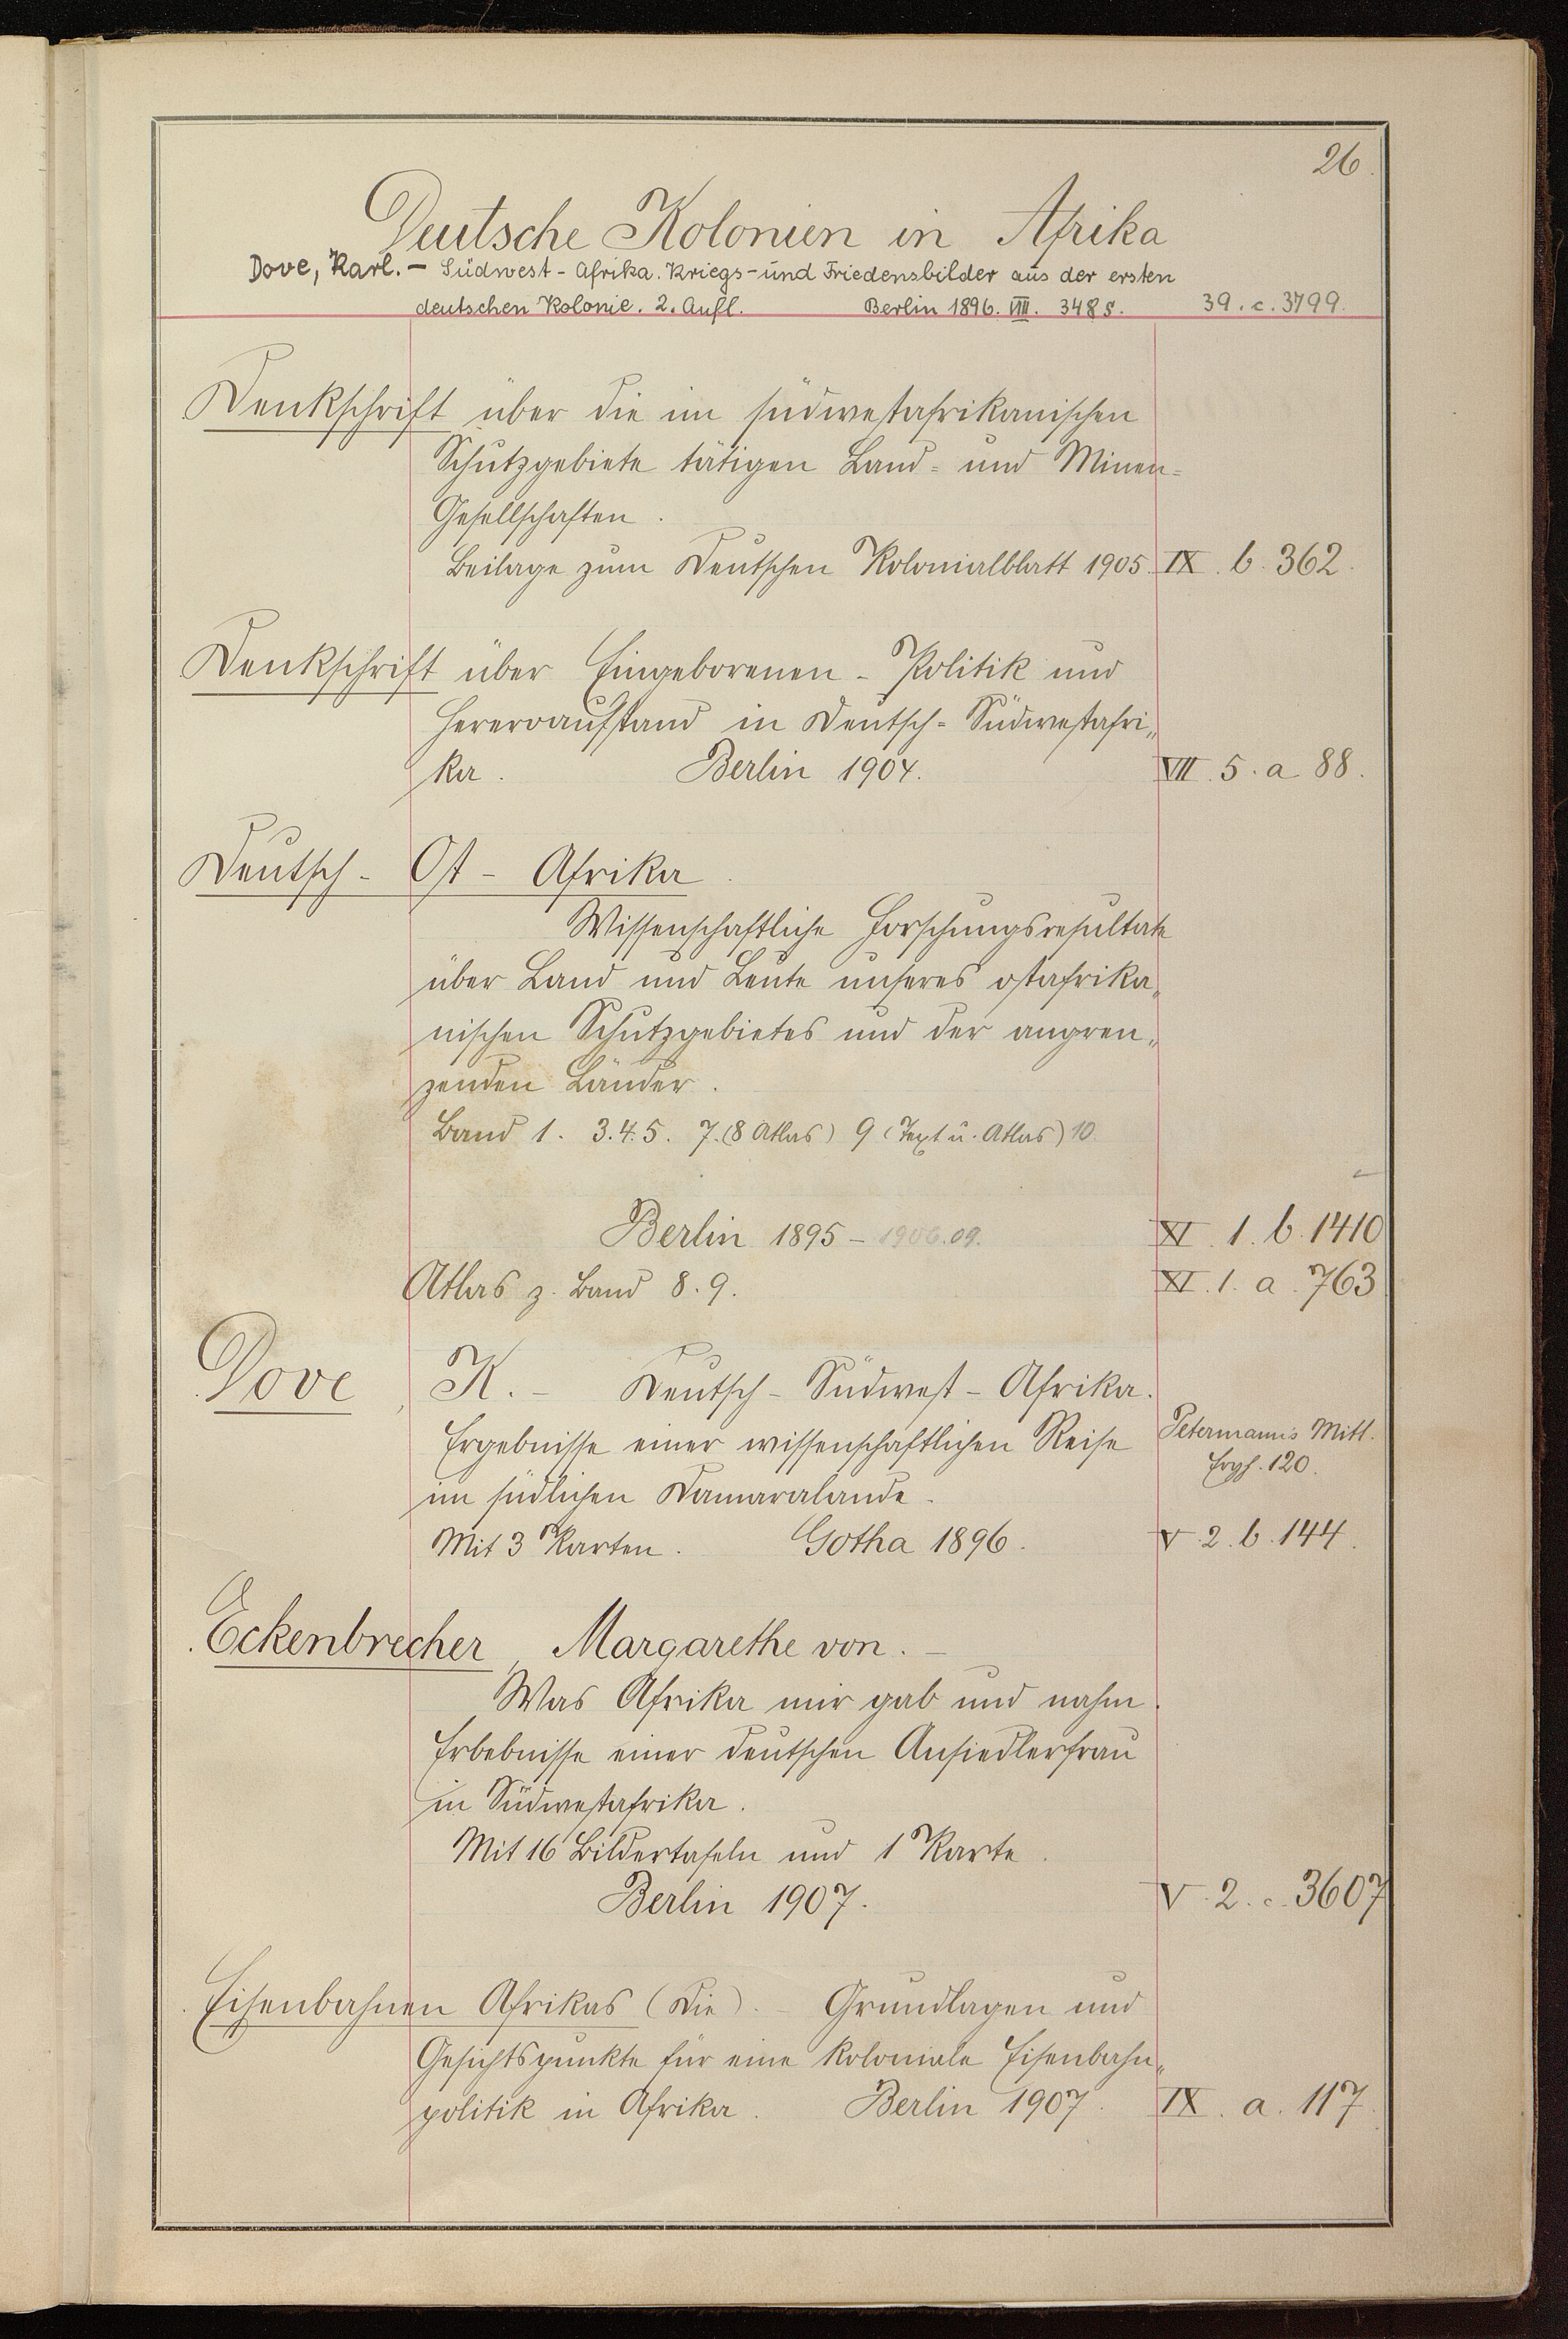 26.
Deutsche Kolonien in Afrika
Dove, Karl. – Südwest-Afrika. Kriegs- und Friedensbilder aus der ersten
deutschen Kolonie. 2. Aufl. Berlin 1896. VIII. 348 S. 39. c. 3799.
Denkschrift über die im südwestafrikanischen
Schutzgebiete tätigen Land- und Minen-
Gesellschaften.
Beilage zum Deutschen Kolonialblatt 1905. IX. b. 362.
Denkschrift über Eingeborenen-Politik und
Hereroaufstand in Deutsch-Südwestafri„
ka. Berlin 1904. VII. 5. a 88.
Deutsch-Ost-Afrika.
Wissenschaftliche Forschungsresultate
über Land und Leute unseres ostafrika„
nischen Schutzgebietes und der angren„
zenden Länder.
Band 1. 3. 4. 5. 7. (8 Atlas) 9 (Text u. Atlas) 10.
Berlin 1895 – 1906.09. XI. 1. b. 1410
Atlas z. Band 8. 9. XI. 1. a. 763
Dove, K. – Deutsch-Südwest-Afrika.
Ergebnisse einer wissenschaftlichen Reise Petermann's Mitt.
im südlichen Damaralande. Ergh. 120.
Mit 3 Karten. Gotha 1896. V. 2. b. 144.
Eckenbrecher, Margarethe von. –
Was Afrika mir gab und nahm.
Erbebnisse einer deutschen Ansiedlerfrau
in Südwestafrika.
Mit 16 Bildertafeln und 1 Karte.
Berlin 1907. V. 2. c. 3607
Eisenbahnen Afrikas (Die). – Grundlagen und
Gesichtspunkte für eine koloniale Eisenbahn„
politik in Afrika. Berlin 1907. IX. a. 117.